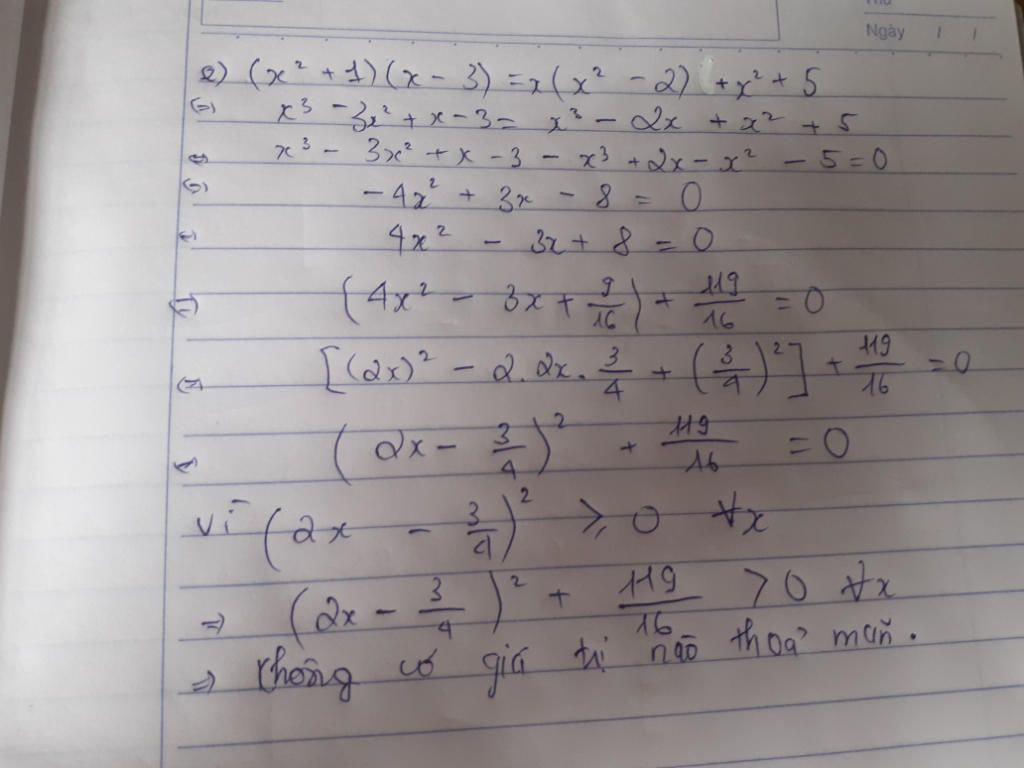 Thứ
Ngày / /
e) (x² + 1)(x - 3) = x(x² - 2) + x² + 5
⇔ x³ - 3x² + x - 3 = x³ - 2x + x² + 5
⇔ x³ - 3x² + x - 3 - x³ + 2x - x² - 5 = 0
⇔ - 4x² + 3x - 8 = 0
⇔ 4x² - 3x + 8 = 0
⇔ (4x² - 3x + 9/16) + 119/16 = 0
⇔ [(2x)² - 2.2x.3/4 + (3/4)²] + 119/16 = 0
⇔ (2x - 3/4)² + 119/16 = 0
Vì (2x - 3/4)² ≥ 0 ∀x
⇒ (2x - 3/4)² + 119/16 > 0 ∀x
⇒ không có giá trị nào thoả mãn.